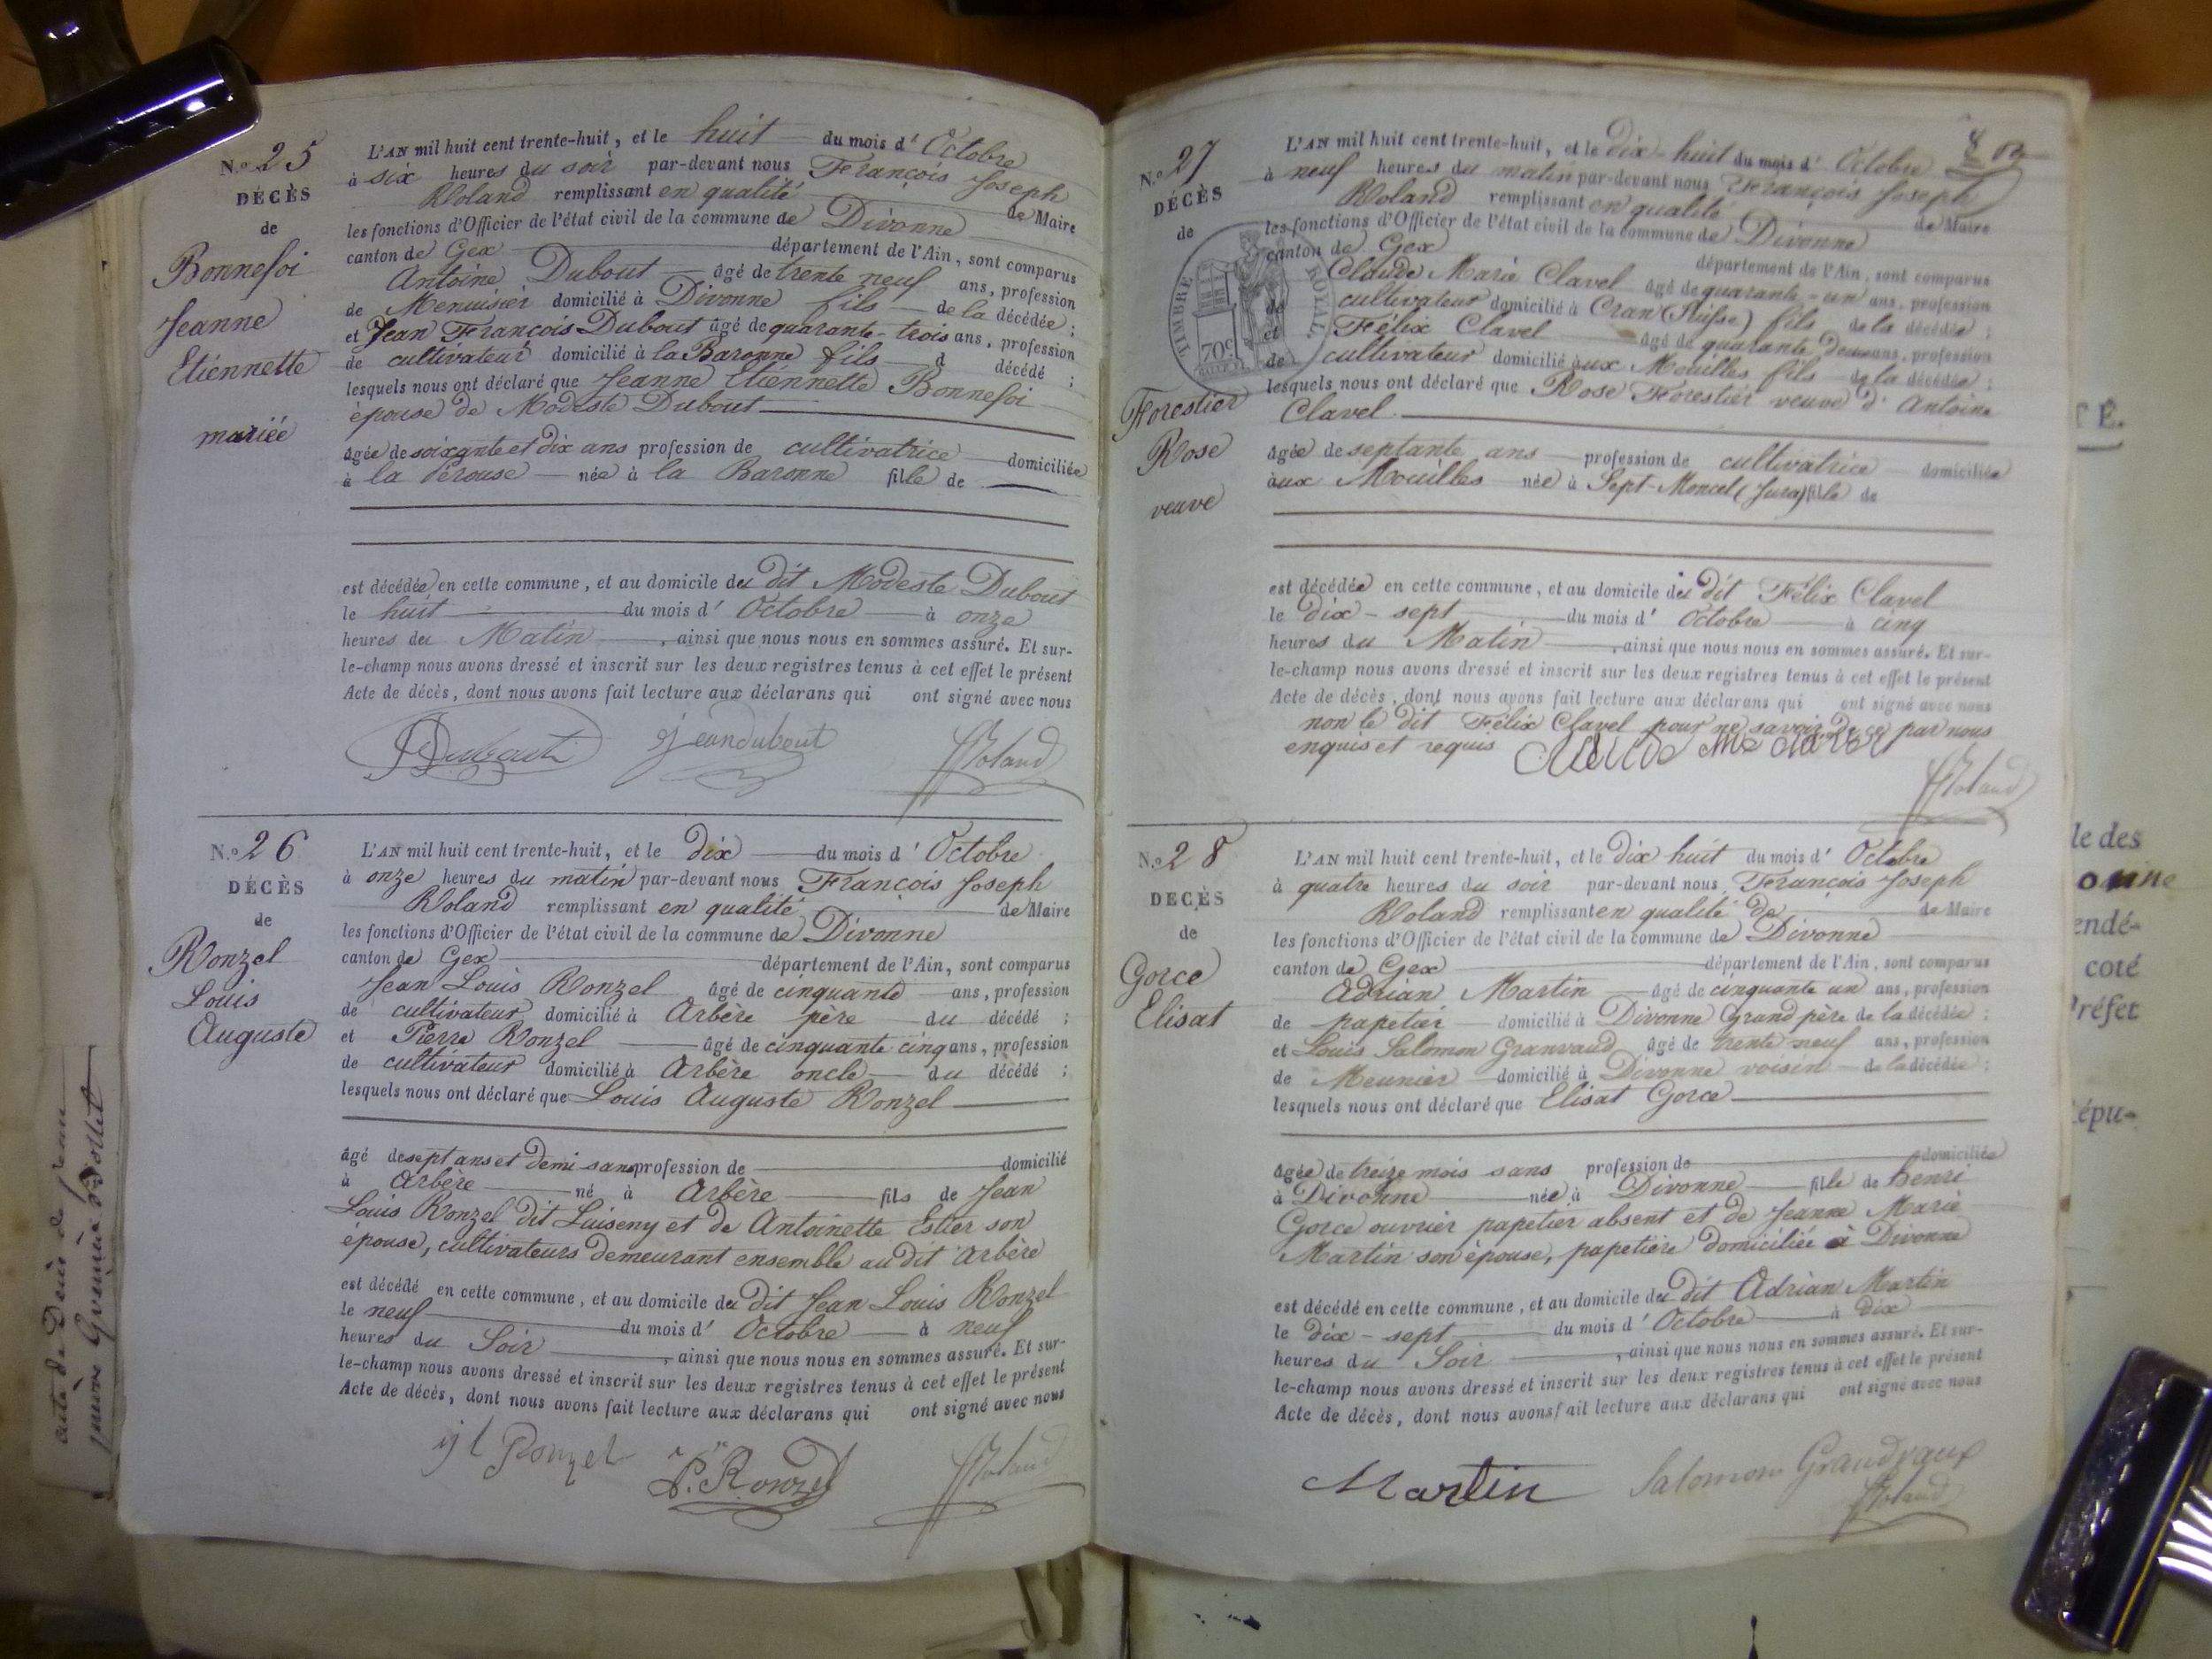 N.o 25
DÉCÈS
de
Bonnefoi
Jeanne
Etiennette
mariée
L'AN mil huit cent trente-huit, et le huit du mois d'Octobre
à six heures du soir par-devant nous François Joseph
Roland remplissant en qualité de Maire
les fonctions d'Officier de l'état civil de la commune de Divonne
canton de Gex département de l'Ain, sont comparus
Antoine Dubout âgé de trente neuf ans, profession
de Menuisier domicilié à Divonne fils de la décédée;
et Jean François Dubout âgé de quarante-trois ans, profession
de cultivateur domicilié à la Baronne fils d décédé;
lesquels nous ont déclaré que Jeanne Etiennette Bonnefoi
épouse de Modeste Dubout
âgée de soixante et dix ans profession de cultivatrice domiciliée
à la Pérouse née à la Baronne fille de
est décédée en cette commune, et au domicile du dit Modeste Dubout
le huit du mois d'Octobre à onze
heures du Matin, ainsi que nous nous en sommes assuré. Et sur-
le-champ nous avons dressé et inscrit sur les deux registres tenus à cet effet le présent
Acte de décès, dont nous avons fait lecture aux déclarans qui ont signé avec nous
Dubout jeandubout Roland
N.o 26
DÉCÈS
de
Ronzel
Louis
Auguste
L'AN mil huit cent trente-huit, et le dix du mois d'Octobre
à onze heures du matin par-devant nous François Joseph
Roland remplissant en qualité de Maire
les fonctions d'Officier de l'état civil de la commune de Divonne
canton de Gex département de l'Ain, sont comparus
Jean Louis Ronzel âgé de cinquante ans, profession
de cultivateur domicilié à Arbère père du décédé;
et Pierre Ronzel âgé de cinquante cinq ans, profession
de cultivateur domicilié à Arbère oncle du décédé;
lesquels nous ont déclaré que Louis Auguste Ronzel
âgé de sept ans et demi sans profession de domicilié
à Arbère né à Arbère fils de Jean
Louis Ronzel dit Luiseny et de Antoinette Estier son
épouse, cultivateurs demeurant ensemble au dit Arbère
est décédé en cette commune, et au domicile du dit Jean Louis Ronzel
le neuf du mois d'Octobre à neuf
heures du Soir, ainsi que nous nous en sommes assuré. Et sur-
le-champ nous avons dressé et inscrit sur les deux registres tenus à cet effet le présent
Acte de décès, dont nous avons fait lecture aux déclarans qui ont signé avec nous
j l Ronzel P. Ronzel Roland
8
N.o 27
DÉCÈS
de
Forestier
Rose
veuve
TIMBRE ROYAL
70c
L'AN mil huit cent trente-huit, et le dix-huit du mois d'Octobre
à neuf heures du matin par-devant nous François Joseph
Roland remplissant en qualité de Maire
les fonctions d'Officier de l'état civil de la commune de Divonne
canton de Gex département de l'Ain, sont comparus
Claude Marie Clavel âgé de quarante-un ans, profession
de cultivateur domicilié à Cran (Suisse) fils de la décédée;
et Félix Clavel âgé de quarante deux ans, profession
de cultivateur domicilié aux Mouilles fils de la décédée;
lesquels nous ont déclaré que Rose Forestier veuve d'Antoine
Clavel
âgée de septante ans profession de cultivatrice domiciliée
aux Mouilles née à Sept-Moncel (Jura) fille de
est décédée en cette commune, et au domicile du dit Félix Clavel
le dix-sept du mois d'Octobre à cinq
heures du Matin, ainsi que nous nous en sommes assuré. Et sur-
le-champ nous avons dressé et inscrit sur les deux registres tenus à cet effet le présent
Acte de décès, dont nous avons fait lecture aux déclarans qui ont signé avec nous
non le dit Félix Clavel pour ne savoir de ce par nous
enquis et requis Claude Me Clavel
Roland
N.o 28
DÉCÈS
de
Gorce
Elisat
L'AN mil huit cent trente-huit, et le dix huit du mois d'Octobre
à quatre heures du soir par-devant nous François Joseph
Roland remplissant en qualité de de Maire
les fonctions d'Officier de l'état civil de la commune de Divonne
canton de Gex département de l'Ain, sont comparus
Adrian Martin âgé de cinquante un ans, profession
de papetier domicilié à Divonne Grand père de la décédée;
et Louis Salomon Granvaud âgé de trente neuf ans, profession
de Meunier domicilié à Divonne voisin de la décédée;
lesquels nous ont déclaré que Elisat Gorce
âgée de treize mois sans profession de domiciliée
à Divonne née à Divonne fille de henri
Gorce ouvrier papetier absent et de Jeanne Marie
Martin son épouse, papetière domiciliée à Divonne
est décédé en cette commune, et au domicile du dit Adrian Martin
le dix-sept du mois d'Octobre à dix
heures du Soir, ainsi que nous nous en sommes assuré. Et sur-
le-champ nous avons dressé et inscrit sur les deux registres tenus à cet effet le présent
Acte de décès, dont nous avons fait lecture aux déclarans qui ont signé avec nous
Martin Salomon Grandvaux
Roland
TÉ.
le des
endé-
coté
Préfet
épu-